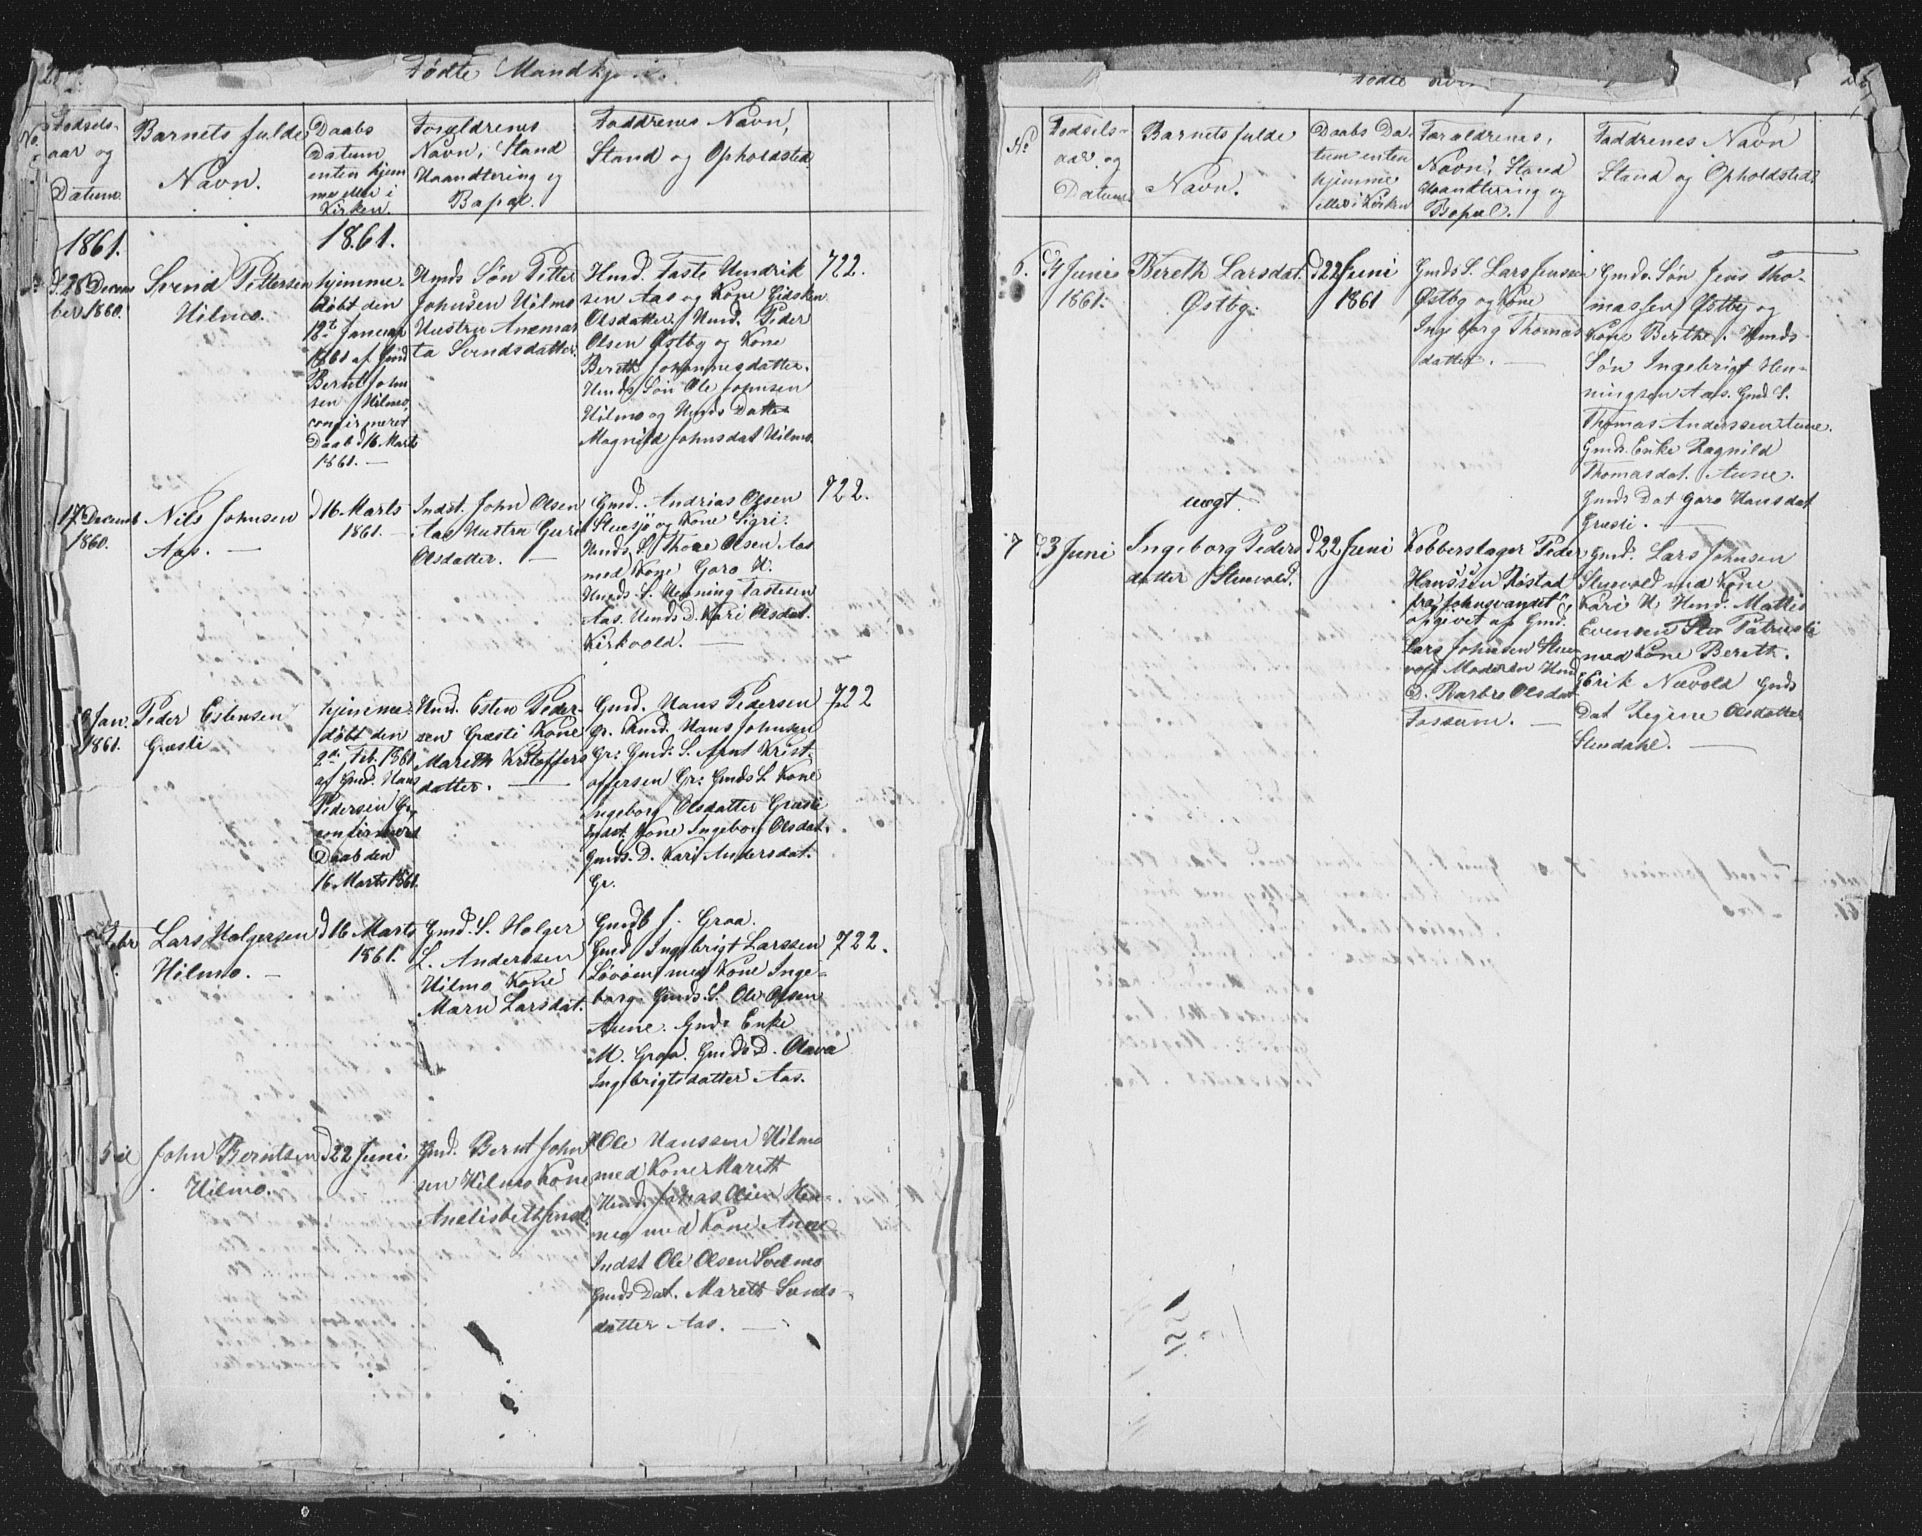 Fødte Mandkjøn
Fødsels-
aar og
Datum.
Barnets fulde
Navn.
Daabs
Datum
enten hjem
me eller i
Kirken.
Forældrenes
Navn, Stand
Haandtering og
Bopæl.
Faddrenes Navn,
Stand og Opholdsted.
1861.
1861.
d. 28 Decem
ber 1860.
Svend Pettersen
Hilmo.
hjemme-
døbt den
12te Januar
1861 af Gmd
Bernt John
sen Hilmo,
confirmeret
Daab d 16 Marts
1861. —
Hmds Søn Petter
Johnsen Hilmo
Hustru Anemar
ta Svendsdatter.
Hmd. Taste Hendrik
sen Aas og Kone Gidsken
Olsdatter. Hmd. Peder
Olsen Østby og Kone
Bereth Johannesdatter.
Hmds Søn Ole Johnsen
Hilmo og Hmds Datter
Magnild Johnsdat Hilmo.
722.
17 Decemb
1860.
Nils Johnsen
Aas. —
d 16 Marts
1861. —
Indst. John Olsen
Aas Hustru Guri
Olsdatter. —
Gmd. Andrias Olsen
Stuesjø og Kone Sigri.
Hmds. S. Thore Olsen Aas
med Kone Goro H.
Hmds. S. Henning Tastesen
Aas. Hmds D. Kari Olsdat.
Kirkvold. —
722.
Jan.
1861.
Peder Estensen
Græsli
hjemme-
døbt den
2den Feb. 1861
af Gmd. Hans
Pedersen Gr.
confirmeret
Daab den
16 Marts 1861.
Hmd. Esten Peder-
sen Græsli Kone
Mareth Kristoffers
datter. —
Gmd. Hans Pedersen
Gr. Hmd. Hans Johnsen
Gr. Gmds. S. Arnt Krist-
offersen Gr. Gmds S. Kone
Ingeborg Olsdatter Græsli
Indst. Kone Ingeborg Olsdat.
Gmds. D. Kari Andersdat.
Gr.
722
Febr
Lars Holgersen
Hilmo. —
d 16 Marts
1861.
Gmd. S. Holger
L. Anderssen
Hilmo Kone
Marn Larsdat.
Gmdb f. Graa.
Gmd. Ingebrigt Larssen
Løvøen med Kone Inge-
borg. Gmds. S. Ole Olsen
Aune. Gmds Enke
M. Graa. Gmds D. Olava
Ingebrigtsdatter Aas.
722.
John Berntsen
Hilmo.
d 22 Juni
Gmd. Bernt John
sen Hilmo Kone
Anelisbeth
Ole Hanssen Hilmo
med Kone Mareth
Hmd. Jonas Olsen Hen-
neg med Kone Anne
Indst Ole Olsen Svelmo
Gmds Dat. Mareth Svends-
datter Aas. —
Fødte
No
Fødsels-
aar og
Datum
Barnets fulde
Navn.
Daabs Da-
tum enten
hjemme
eller i Kirken
Forældrenes,
Navn, Stand
Haandtering og
Bopæl.
Faddrenes Navn
Stand og Opholdsted.
6.
d 4 Juni
1861.
Bereth Larsdat.
Østby.
d 22 Juni
1861
Gmds S. Lars Jenssen
Østby og Kone
Ingeborg Thomas
datter. —
Gmds. Søn Jens Tho-
massen Østby og
Kone Berthe. Hmds
Søn Ingebrigt Hen-
ningsen Aas. Gmd S.
Thomas Anderssen Aune.
Gmds. Enke Ragnild
Thomasdat. Aune.
Gmds Dat Goro Hansdat
Græsli. —
7
d. 3 Juni
uægt.
Ingeborg Peders
datter Stuevold.
d 22 Juni
Kobberslager Peder
Hanssen Røstad
fra Johnsvandet
opgivet af Gmd.
Lars Johnsen Stue
vold Moderen Hmd
D. Barbro Olsdat
Fossum. —
Gmd. Lars Johnsen
Stuevold med Kone
Kari H. Hmd. Mattis
Evensen
med Kone Bereth.
Erik Nævold Gmds
Dat Regine Olsdatter
Stendahl. —